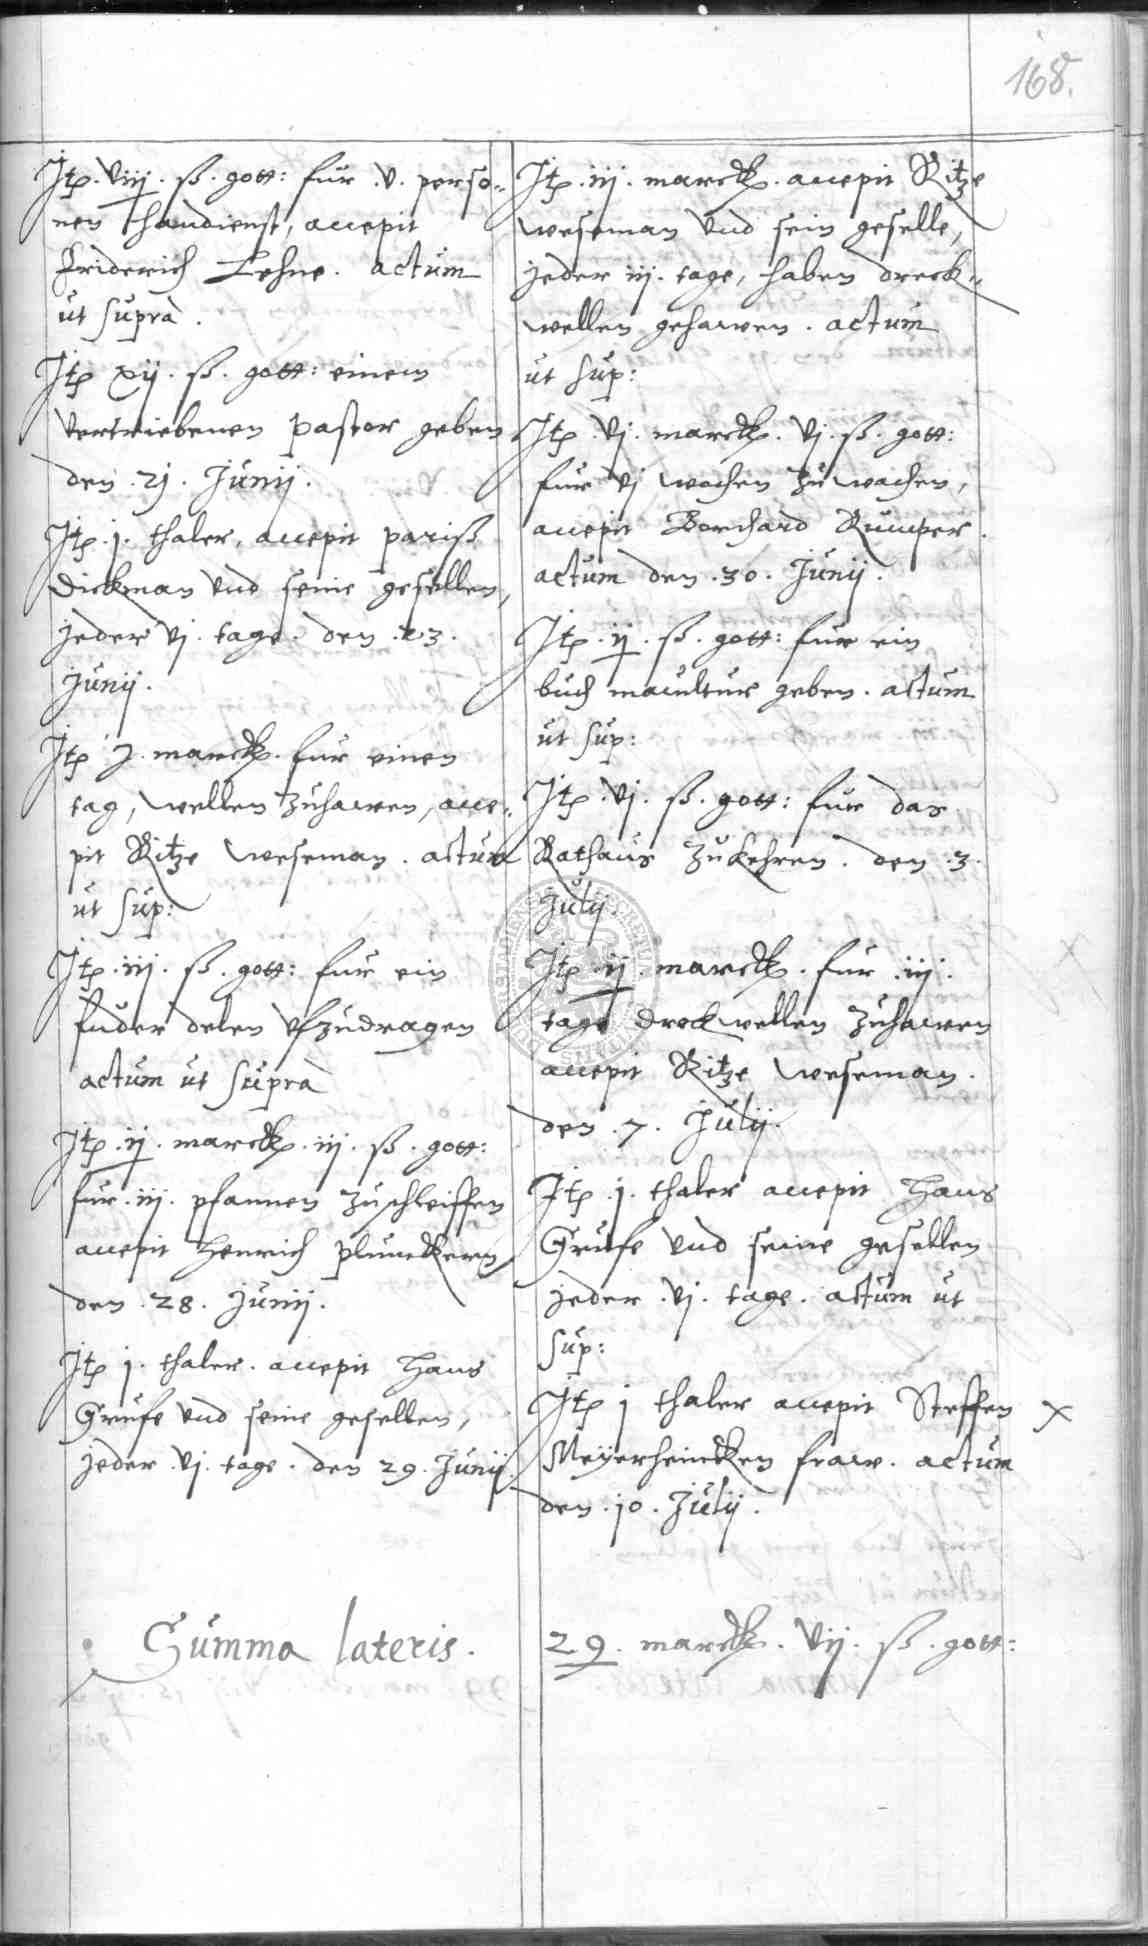 168.
Itp. viij. ß. gott: fur .v. perso-
nen handienst, accepit
Friderich Lehne. actum
ut supra.
Itp xij. ß. gott: einem
vertriebenen pastor geben
den .2j. Junij.
Itp. j. thaler, accepit pariß
Dickman vnd seine gesellen,
jeder vj. tage. den .23.
Junij.
Itp j. marck. fur einen
tag, wellen zuhawen, acce-
pit Ritze Weseman. actum
ut sup:
Itp. iij. ß. gott: fur ein
fuder delen vfzudragen
actum ut supra
Itp. ij. marck. iij. ß. gott:
fur .iij. pfannen zuschleiffen
accepit Henrich
den .28. Junij.
Itp j. thaler. accepit Hans
Grufe vnd seine gesellen,
jeder .vj. tage. den 29. Junij
Itp. iij. marck. accepit Ritze
Weseman vnd sein geselle,
jeder iij. tage, haben dreck-
wellen gehawen. actum
ut sup:
Itp. vj. marck. vj. ß. gott:
fur vj wochen zu wachen,
accepit Borchard Rumper.
actum den .30. Junij.
Itp. ij. ß. gott: fur ein
buch macultur geben. actum
ut sup:
Itp. vj. ß. gott: fur das
Rathaus zukehren. den .3.
Julij.
Itp. ij. marck. fur .iij.
tage dreckwellen zuhawen
accepit Ritze Weseman.
den .7. Julij.
Itp. j. thaler accepit Hans
Grufe vnd seine gesellen
jeder .vj. tage. actum ut
sup:
Itp j thaler accepit Steffen
Meyerheincken fraw. actum
den .10. Julij.
Summa lateris. 29. marck. vij. ß. gott: